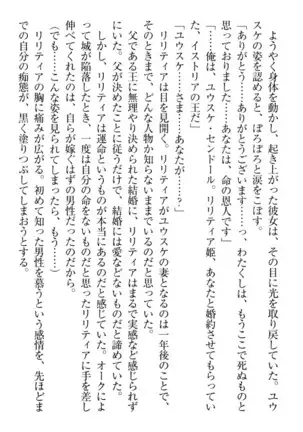 ようやく身体を動かし、起き上がった彼女は、その目に光を取り戻していた。ユウ
スケの姿を認めると、ぽろぽろと涙をこぼす。
「ありがとう……ありがとうございます……っ、わたくしは、もうここで死ぬものと
思っておりました……あなたは、命の恩人です」
「……俺は、ユウスケ・センドール。リリティア姫、あなたと婚約させてもらってい
た、イストリアの王だ」
「ユウスケ……さま……あなたが……？」
リリティアは目を見開く。リリティアがユウスケの妻となるのは一年後のことで、
そのときまで、どんな人物か知らないままでいるのだと思っていた。
父である王に無理やり決められた結婚に、リリティアはまるで実感など感じられず
にいた。父が決めたことに従うだけで、結婚には愛などないものだと諦めていた。
しかし、リリティアは運命というものが本当にあるのだと感じていた。オークによ
って城が陥落したとき、一度は自分の命をないものだと思ったリリティアを助けに来
てくれたのは、自らが嫁ぐはずの男性だったのだから。
（でも……こんな姿を見られてしまったら、もう……）
リリティアの胸に痛みが広がる。初めて知った男性を慕うという感情を、先ほどま
での自分の痴態が、黒く塗りつぶしてしまおうとする。